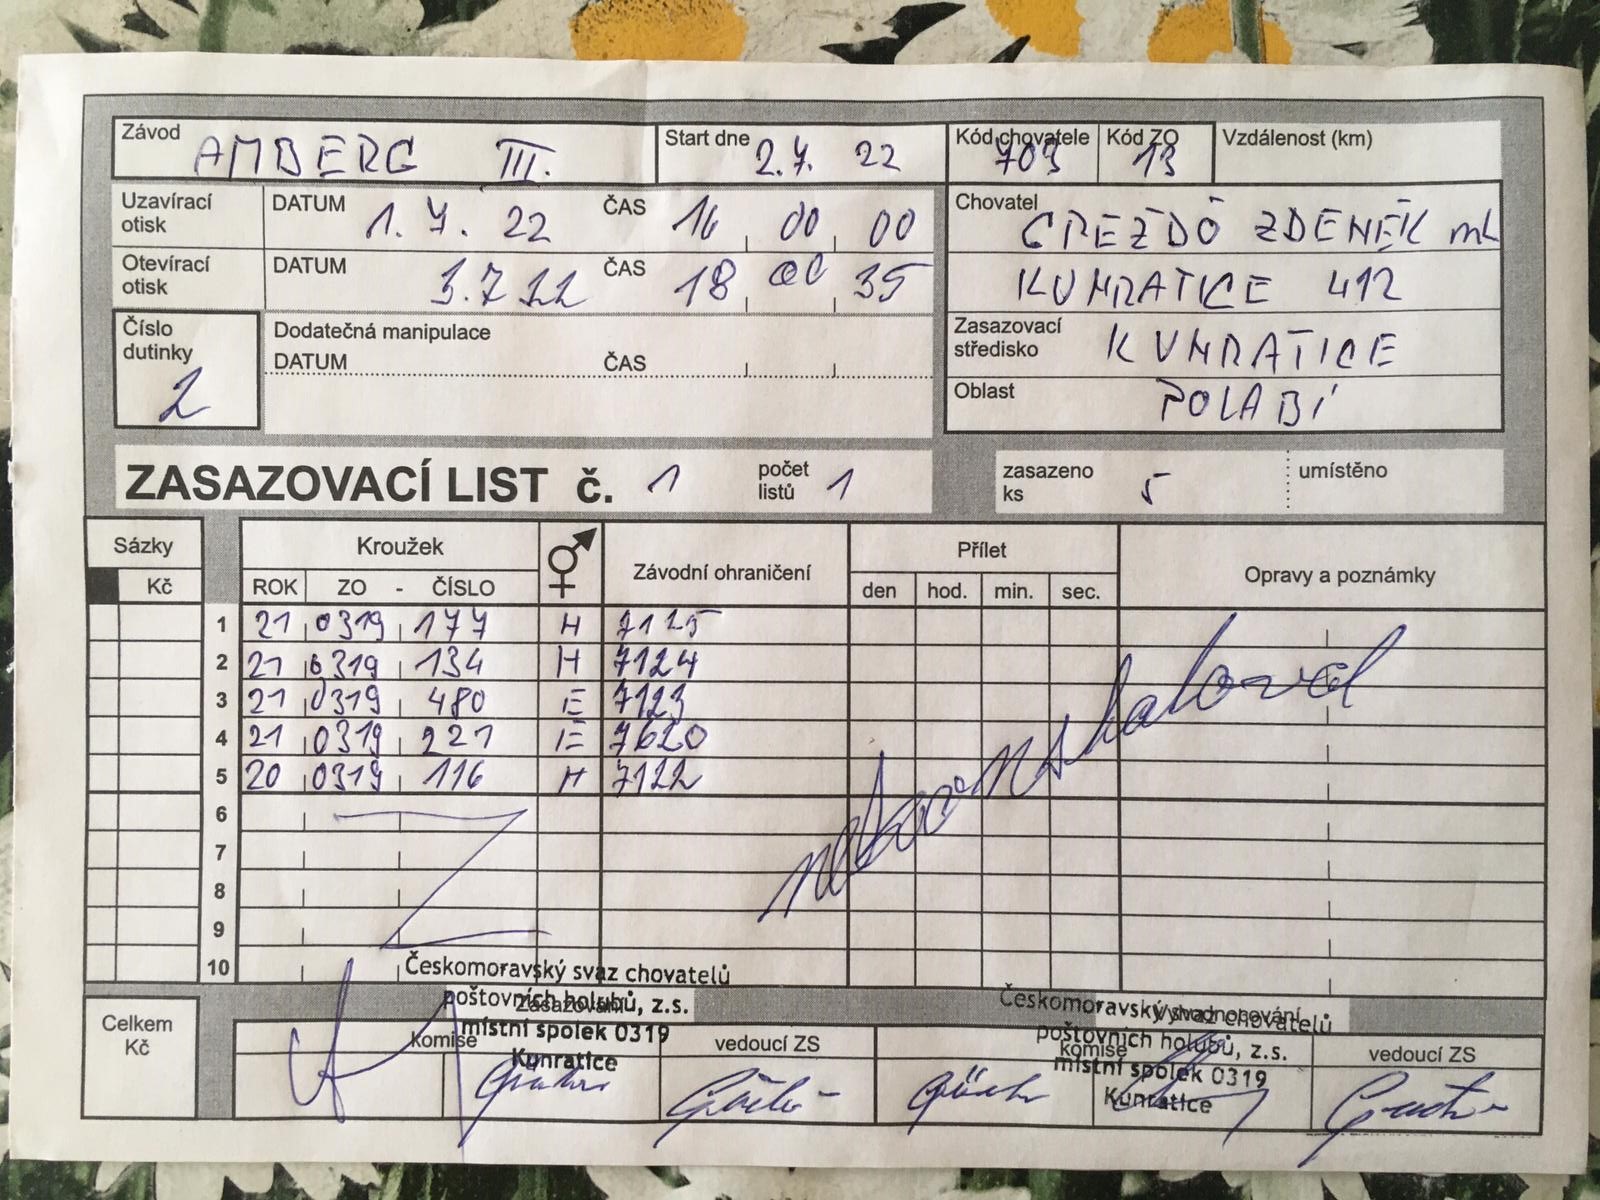 Závod AMBERG III. Start dne 2.7. 22 Kód chovatele 703 Kód ZO 13 Vzdálenost (km)
Uzavírací otisk DATUM 1. 7. 22 ČAS 16 00 00
Chovatel ZDENĚK ml
Otevírací otisk DATUM 3.7 22 ČAS 18 00 35
KUNRATICE 412
Číslo dutinky 2
Dodatečná manipulace
DATUM ČAS
Zasazovací středisko KUNRATICE
Oblast POLABÍ
ZASAZOVACÍ LIST č. 1 počet listů 1 zasazeno ks 5 umístěno
Sázky Kroužek Závodní ohraničení Přílet Opravy a poznámky
Kč ROK ZO - ČÍSLO den hod. min. sec.
1 21 0319 177 H 7125
2 21 0319 134 H 7124
3 21 0319 480 E 7123
4 21 0319 221 E 7620
5 20 0319 116 H 7122
6
7
8
9
10
nekonstatoval
Celkem Kč
Zasazování
Českomoravský svaz chovatelů
poštovních holubů, z.s.
místní spolek 0319
Kunratice
komise vedoucí ZS
Vyhodnocování
Českomoravský svaz chovatelů
poštovních holubů, z.s.
místní spolek 0319
Kunratice
komise vedoucí ZS